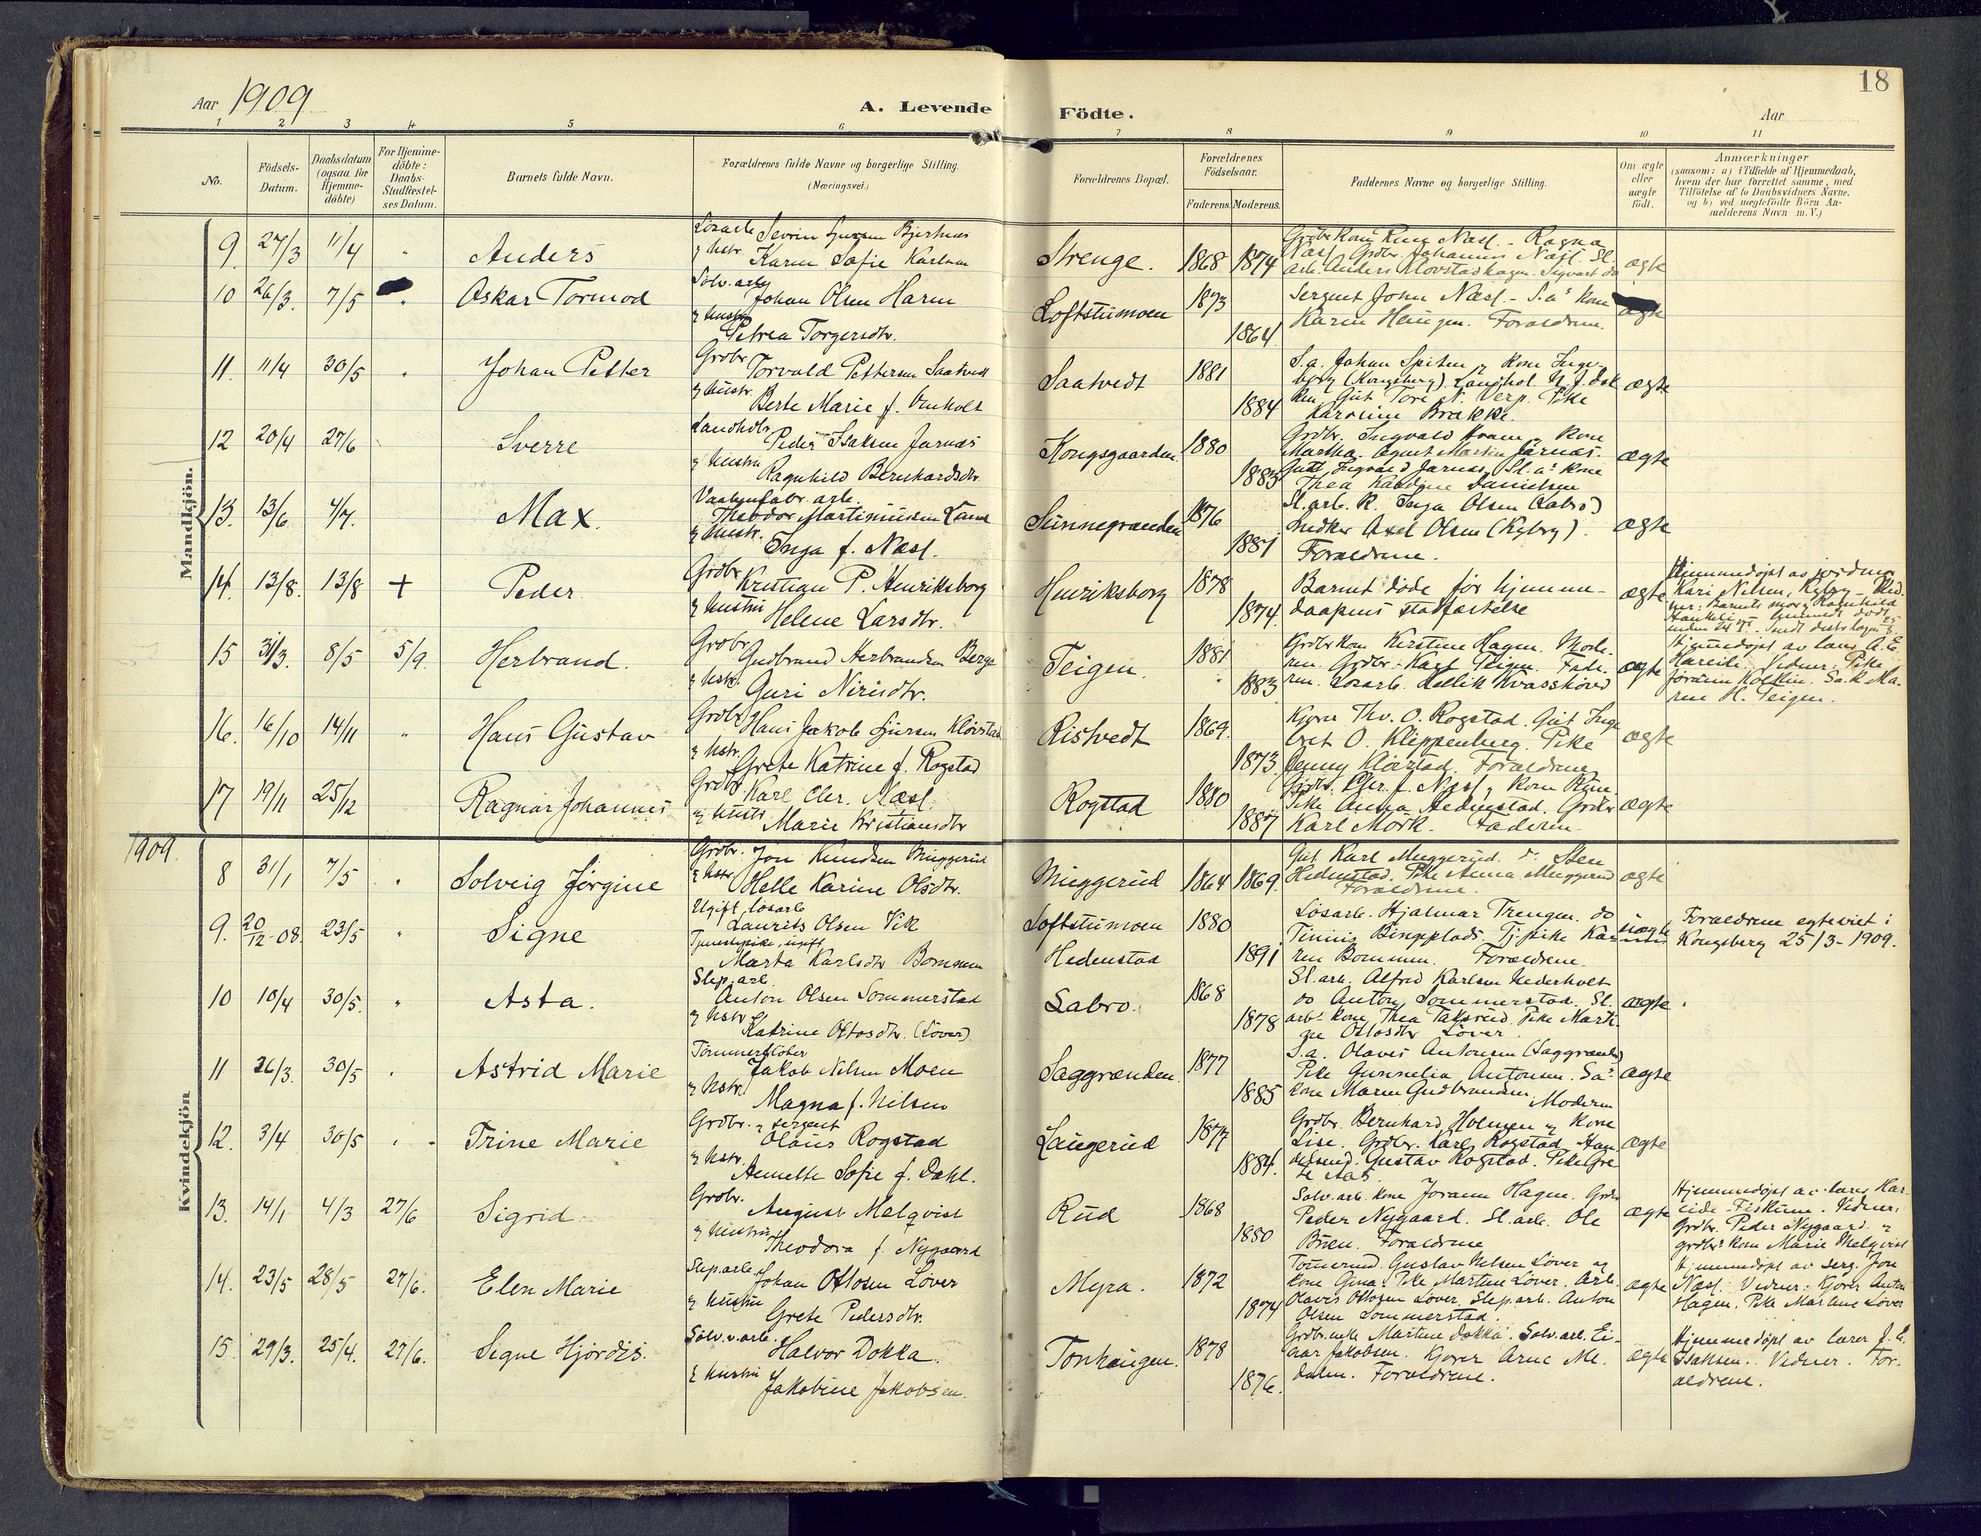 18
Aar 1909
A. Levende Födte.
Aar
1 2 3 4 5 6 7 8 9 10 11
No.
Födsels-Datum.
Daabsdatum (ogsaa for Hjemmedöbte)
For Hjemmedöbte: Daabs-Stadfæstelses Datum.
Barnets fulde Navn.
Forældrenes fulde Navne og borgerlige Stilling. (Næringsvei.)
Forældrenes Bopæl.
Forældrenes Födselsaar.
Faderens. Moderens.
Faddernes Navne og borgerlige Stilling.
Om ægte eller uægte födt.
Anmærkninger
(saasom: a) i Tilfælde af Hjemmedaab, hvem der har forrettet samme, med Tilföielse af to Daabsvidners Navne. og b) ved uegtefödte Börn Anmelderens Navn m. V.)
Mandkjön.
9. 27/3 11/4 " Anders
Karen Sofie Karlsen
Strenge. 1868 1874
ægte
10 26/3. 7/5 " Oskar Tormod
Sølv.arb. Johan Olsen Haren
& hustru Petrea Torgersdtr.
Loftstumoen 1873 1864.
Sergent John Næsl. - S.a's kone
Karen Haugen. Forældrene.
ægte
11. 11/4 30/5 " Johan Petter
Grdbr. Torvald Pettersen Saatvedt
& hustr. Berte Marie f.
Saatvedt 1881 1884
S.a. Johan Spiten & kone Inge-
borg (Kongsberg).
Karoline Brekke.
ægte
12 20/4 27/6 Sverre
Landhdlr. Peder Isaksen Jarnæs
& hustru Ragnhild Bernhardsdtr.
Kongsgaarden 1880 1883
Grdbr. Ingvald Hvam & kone
Martha. Agent Martin Jarnæs.
Gutt Ingvald Jarnæs. Sl.a's kone
Thea Danielsen
ægte
13. 13/6 4/7. Max.
Vaabenfabr. arb.
Theodor Martiniussen Lande
& hustr. Inga f. Næsl.
Sunnegrænden 1876 1881
Sl.arb. k. Inga Olsen (Labro)
Snedker Axel Olsen (Kyberg).
Forældrene.
ægte
14. 13/8. 13/8 + Peder
Grdbr. Kristian P. Henriksborg
& hustru Helene Larsdtr.
Henriksborg 1878 1874.
Barnet døde før hjemme-
daapens stadfæstelse
ægte
Hjemmedøpt av jordmor
Kari Nilsen, Kyberg
15 31/3. 8/5 5/9. Herbrand.
Grdbr. Gudbrand Herbrandsen Berge
& hstr. Guri Nirisdtr.
Teigen. 1881 1883
Grdbr.kone Kirstine Hagen. Mode-
ren. Grdbr. Karl Teigen. Fade-
ren. Løsarb. Kvasshøved
ægte
Hjemmedøpt av lærer A. E.
Hareide. Vidner: Pike
16. 16/10 14/11 " Hans Gustav
Grdbr. Hans Jakob Gursen Kløvstad
& hstr. Grete Katrine f. Rogstad
Ristvedt 1869. 1873.
Kjører Thv. O. Rogstad. Gut Inge-
bret O. Klippenberg. Pike
Jenny Kløvstad. Forældrene.
ægte
17 19/11 25/12 Ragnar Johannes
Grdbr. Karl Chr. Næsl.
& hustr. Marie Kristiansdtr
Rogstad 1880 1887
Pike Anna Hedenstad. Grdbr
Karl Mørk. Faderen.
ægte
1909.
Kvindekjön
8 31/1 7/5 " Solveig Jørgine
Grdbr. Jon Knudsen Muggerud
& hstr. Helle Karine Olsdtr.
Muggerud 1864 1869.
Gut Karl Muggerud. do Sten
Hedenstad. Pike Anna Muggerud
Forældrene.
ægte
9. 20/12-08. 23/5 " Signe
Ugift løsarb
Laurits Olsen Vik
Tjenestepike, ugift
Marta Karlsdtr Bommen
Loftstumoen 1880
Hedenstad 1891
Løsarb. Hjalmar Trengen. do
Tj.pike Ka-
ren Bommen. Forældrene.
uægte
Forældrene egteviet i
Kongsberg 25/3-1909.
10 10/4 30/5 " Asta.
Slip.arb.
Anton Olsen Sommerstad
& hstr. Katrine Ottosdtr (Løver)
Labro. 1868 1878
Sl.arb. Alfred Karlsen Nederholt
do Anton Sommerstad. Sl.
arb's kone Thea Taksrud. Pike Marti-
ne Ottosdtr Løver.
ægte
11 26/3. 30/5 " Astrid Marie
Tømmerfløter
Jakob Nilsen Moen
& hstr. Magna f. Nilsen
Saggrænden. 1877 1885
S.a. Olaves Antonsen (Saggrænden)
Pike Gunnelia Antonsen. Sa's
kone Maren Gudbrandsen. Moderen
ægte
12. 3/4 30/5 " " Trine Marie
Grdbr. & sergent
Olaus Rogstad
& hstr. Annette Sofie f. Dahl.
Laugerud 1877 1884.
Grdbr. Bernhard Holmen & kone
Lise. Grdbr. Karl Rogstad. Han-
delsmd. Gustav Rogstad. Pike Gre-
te Aas.
ægte
13. 14/1 4/3 27/6 Sigrid
Grdbr. August Melqvist
& hustru Theodora f. Nygaard
Rud 1868 1880
Sølv.arb. kone Joramm Hagen. Grdbr
Peder Nygaard. Sl.arb. Ole
Buen. Forældrene
ægte
Hjemmedøpt av lærer Har-
eide-Fiskum. Vidner:
Grdbr. Peder Nygaard. &
grdbr's kone Marie Melqvist
14. 23/5 28/5 27/6. Elen Marie
Slip.arb. Johan Ottosen Løver
& hustru Grete Pedersdtr.
Myra. 1872 1874
Tømmermd. Gustav Nilsen Løver og
kone Gina. Pike Martine Løver. Arb.
Olaves Ottosen Løver. Slip.arb. Anton
Olsen Sommerstad.
ægte
Hjemmedøpt av serg. Jon
Næsl. Vidner: Kjører Anton
Hagen. Pike Martine Løver
15. 29/3. 25/4. 27/6. Signe Hjørdis.
Sølv.v.arb. Halvor Dokka.
& hustru Jakobine Jakobsen.
Tonhaugen. 1878 1876.
Grdbr.enke Martine Dokka. Sølv.arb. Ei-
nar Jakobsen. Kjører Arne Me-
dalen. Forældrene.
ægte
Hjemmedøpt av lærer J. E.
Isaksen. Vidner. For-
ældrene.